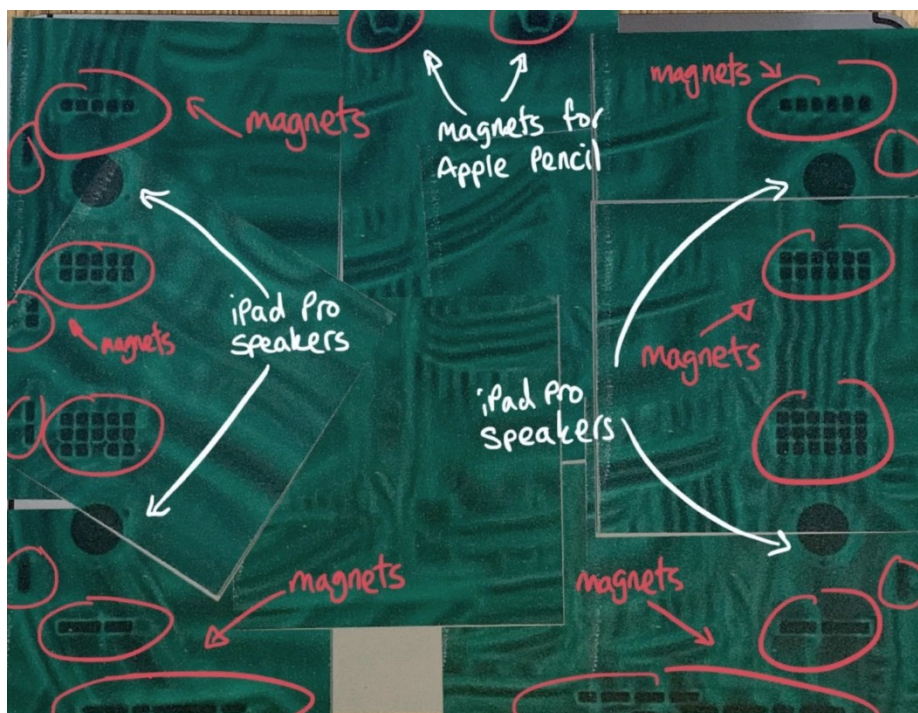 magnets
magnets
magnets for
Apple Pencil
iPad Pro
speakers
magnets
magnets
iPad Pro
speakers
magnets
magnets